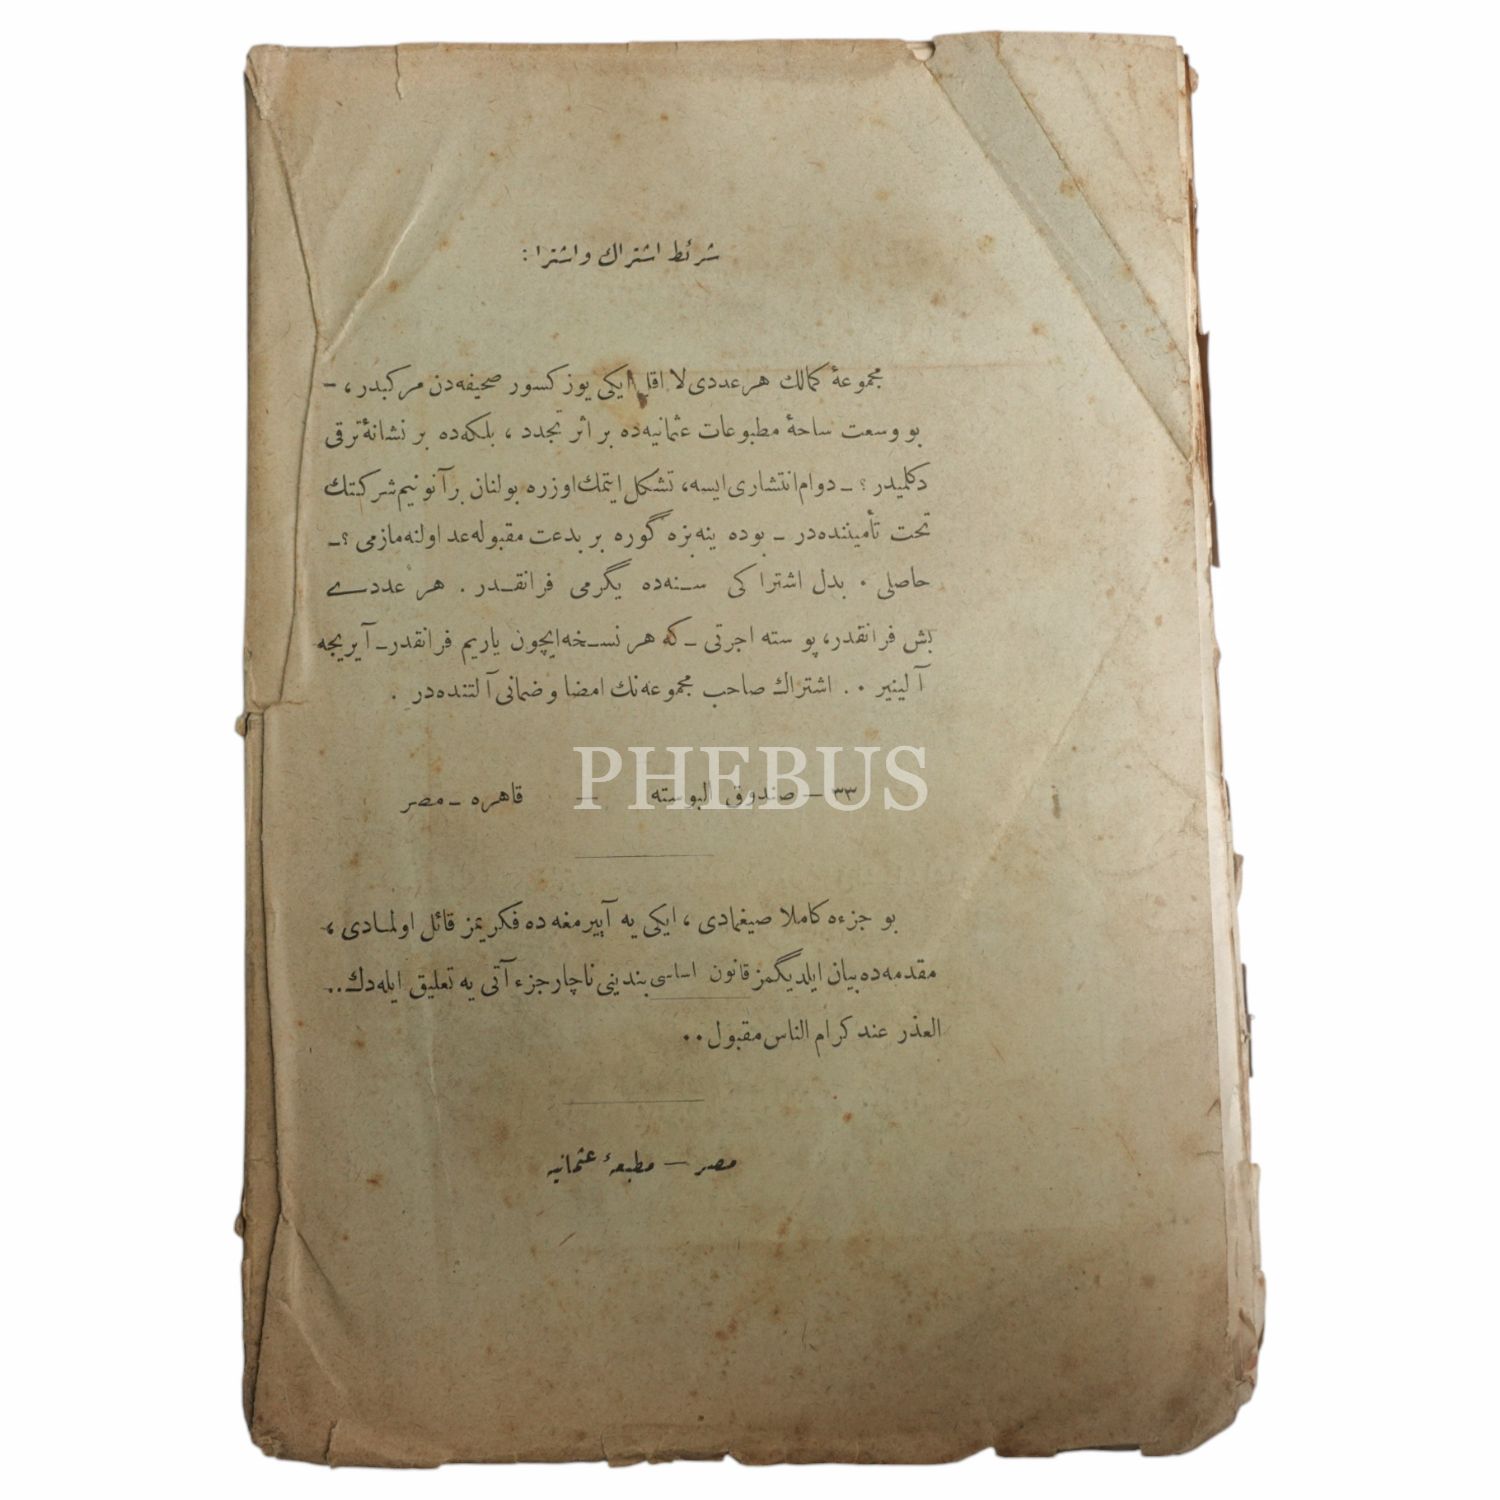 شرئط اشتراك و اشترا :
مجموعهٔ كمالك هر عددى لا اقل ايكى يوز كسور صحيفه‌دن مركبدر ، –
بو وسعت ساحهٔ مطبوعات عثمانيه‌ده بر اثر تجدد ، بلكه‌ده بر نشانهٔ ترقى
دكلميدر ؟ – دوام انتشارى ايسه ، تشكل ايتمك اوزره بولنان بر آنونيم شركتك
تحت تأميننده‌در – بوده ينه بزه گوره بر بدعت مقبوله عد اولنه‌مازمى ؟ –
حاصلى . بدل اشتراكى سنه‌ده يگرمى فرانقدر . هر عددے
بش فرانقدر ، پوسته اجرتى – كه هر نسخه ايچون ياريم فرانقدر – آيريجه
آلينير . . اشتراك صاحب مجموعه‌نك امضا و ضمانى آلتنده‌در .
PHEBUS
٣٣ – صندوق البوسته – قاهره – مصر
بو جزءه كاملا صيغمادى ، ايكى يه آييرمغه ده فكريمز قائل اولمادى ،
مقدمه‌ده بيان ايلديگمز قانون اساسى بندينى ناچار جزء آتى يه تعليق ايله‌دك . .
العذر عند كرام الناس مقبول . .
مصر – مطبعهٔ عثمانيه